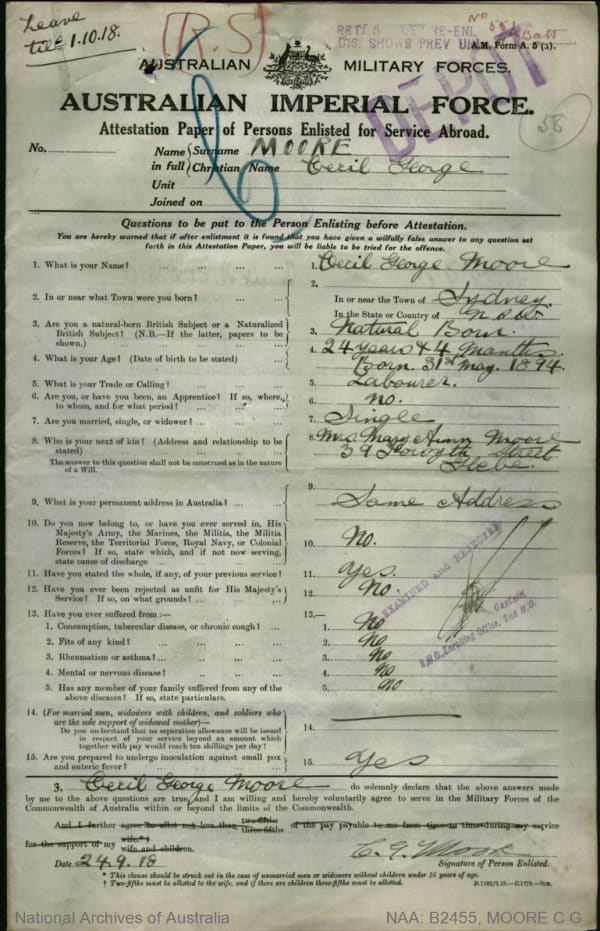 Leave
till 1.10.18.
(R.S)
No 551
Batt
A.M. Form A. 5 (a).
DEPOT
58
AUSTRALIAN MILITARY FORCES.
AUSTRALIAN IMPERIAL FORCE.
Attestation Paper of Persons Enlisted for Service Abroad.
No. Name in full { Surname MOORE
Christian Name Cecil George
Unit
Joined on
Questions to be put to the Person Enlisting before Attestation.
You are hereby warned that if after enlistment it is found that you have given a wilfully false answer to any question set
forth in this Attestation Paper, you will be liable to be tried for the offence.
1. What is your Name? ... ... ... ... 1. Cecil George Moore
2. In or near what Town were you born? ... ... 2. In or near the Town of Sydney
In the State or Country of N.S.W
3. Are you a natural-born British Subject or a Naturalized
British Subject? (N.B.—If the latter, papers to be
shown.) ... ... ... ... 3. Natural Born.
4. What is your Age? (Date of birth to be stated) ... 4. 24 years & 4 Months.
Born 31st May. 1894.
5. What is your Trade or Calling? ... ... ... 5. Labourer.
6. Are you, or have you been, an Apprentice? If so, where,
to whom, and for what period? ... ... ... 6. no.
7. Are you married, single, or widower? ... ... ... 7. Single
8. Who is your next of kin? (Address and relationship to be
stated) ... ... ... ... 8. Mrs Mary Ann Moore
39 Forsyth Street
Glebe.
The answer to this question shall not be construed as in the nature
of a Will.
9. What is your permanent address in Australia? ... ... 9. Same Address
10. Do you now belong to, or have you ever served in, His
Majesty's Army, the Marines, the Militia, the Militia
Reserve, the Territorial Force, Royal Navy, or Colonial
Forces? If so, state which, and if not now serving,
state cause of discharge ... ... ... 10. No.
11. Have you stated the whole, if any, of your previous service? 11. Yes.
12. Have you ever been rejected as unfit for His Majesty's
Service? If so, on what grounds? ... ... ... 12. No.
EXAMINED AND REJECTED
Captain,
S.M.O. Enrolling Office, 2nd M.D.
13. Have you ever suffered from :— 13.—
1. Consumption, tubercular disease, or chronic cough? ... 1. No
2. Fits of any kind? ... ... ... ... 2. No
3. Rheumatism or asthma? ... ... ... ... 3. No
4. Mental or nervous disease? ... ... ... 4. No
5. Has any member of your family suffered from any of the
above diseases? If so, state particulars. 5. No
14. (For married men, widowers with children, and soldiers who
are the sole support of widowed mother)—
Do you understand that no separation allowance will be issued
in respect of your service beyond an amount which
together with pay would reach ten shillings per day? 14.
15. Are you prepared to undergo inoculation against small pox
and enteric fever? ... ... ... ... 15. Yes
I, Cecil George Moore do solemnly declare that the above answers made
by me to the above questions are true, and I am willing and hereby voluntarily agree to serve in the Military Forces of the
Commonwealth of Australia within or beyond the limits of the Commonwealth.
And I further agree to allot not less than two-fifths three-fifths of the pay payable to me from time to time during my service
for the support of my wife*† wife and children.
Date 24.9.18 C. G. Moore
Signature of Person Enlisted.
* This clause should be struck out in the case of unmarried men or widowers without children under 16 years of age.
† Two-fifths must be allotted to the wife, and if there are children three-fifths must be allotted.
National Archives of Australia NAA: B2455, MOORE C G